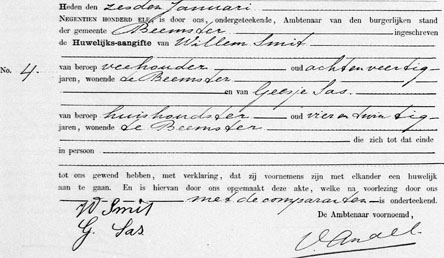 Heden den zesden Januari
NEGENTIEN HONDERD ELF, is door ons, ondergeteekende, Ambtenaar van den burgerlijken stand
der gemeente Beemster ingeschreven
de Huwelijks-aangifte van Willem Smit,
No. 4.
van beroep veehouder oud achten veertig
jaren, wonende te Beemster
en van Geesje Sas,
van beroep huishoudster oud vier en twintig
jaren, wonende te Beemster
die zich tot dat einde
in persoon
tot ons gewend hebben, met verklaring, dat zij voornemens zijn met elkander een huwelijk
aan te gaan. En is hiervan door ons opgemaakt deze akte, welke na voorlezing door ons
met de comparanten is onderteekend.
W Smit
De Ambtenaar voornoemd,
G. Sas